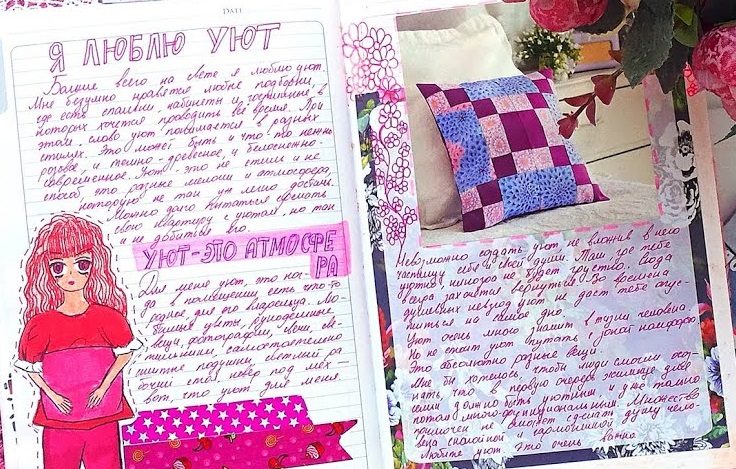 DATE
Я ЛЮБЛЮ УЮТ
Больше всего на свете я люблю уют.
Мне безумно нравятся любые подборки,
где есть спальни, кабинеты и гостиные в
которых хочется проводить все время. При
этом, слово уют понимается в разных
стилях. Это может быть и что-то нежно
розовое, и темно-древесное, и белоснежно-
современное. Уют - это не стиль и не
способ, это разные мелочи и атмосфера,
которую не так уж легко добыть.
Можно долго пытаться сделать
свою квартиру с уютом, но так
и не добиться его.
УЮТ-ЭТО АТМОСФЕ
РА
Для меня уют, это ког-
да в помещении есть что-то
родное для его владельца. Лю-
бимые цветы, вещи, фотографии, свечи, све-
тильники, самостоятельно
сшитые подушки, светлый ра
бочий стол, ковер под
вот, что уют для меня.
Невозможно создать уют не вложив в него
частицу себя и своей души. Там, где тебе
уютно, никогда не будет грустно. Сюда
всегда захочется вернуться. Во времена
душевных невзгод уют не даст тебе опус-
титься на самое дно.
Уют очень много значит в жизни человека.
Но не стоит уют путать с зоной комфорта.
Это абсолютно разные вещи.
Мне бы хотелось, чтобы люди смогли осо-
знать, что в первую очередь жилище для
семьи должно быть уютным, и уже только
потом много-функциональным. Множество
примочек не сможет сделать душу чело-
века спокойной и гармоничной.
Любите уют это очень важно.